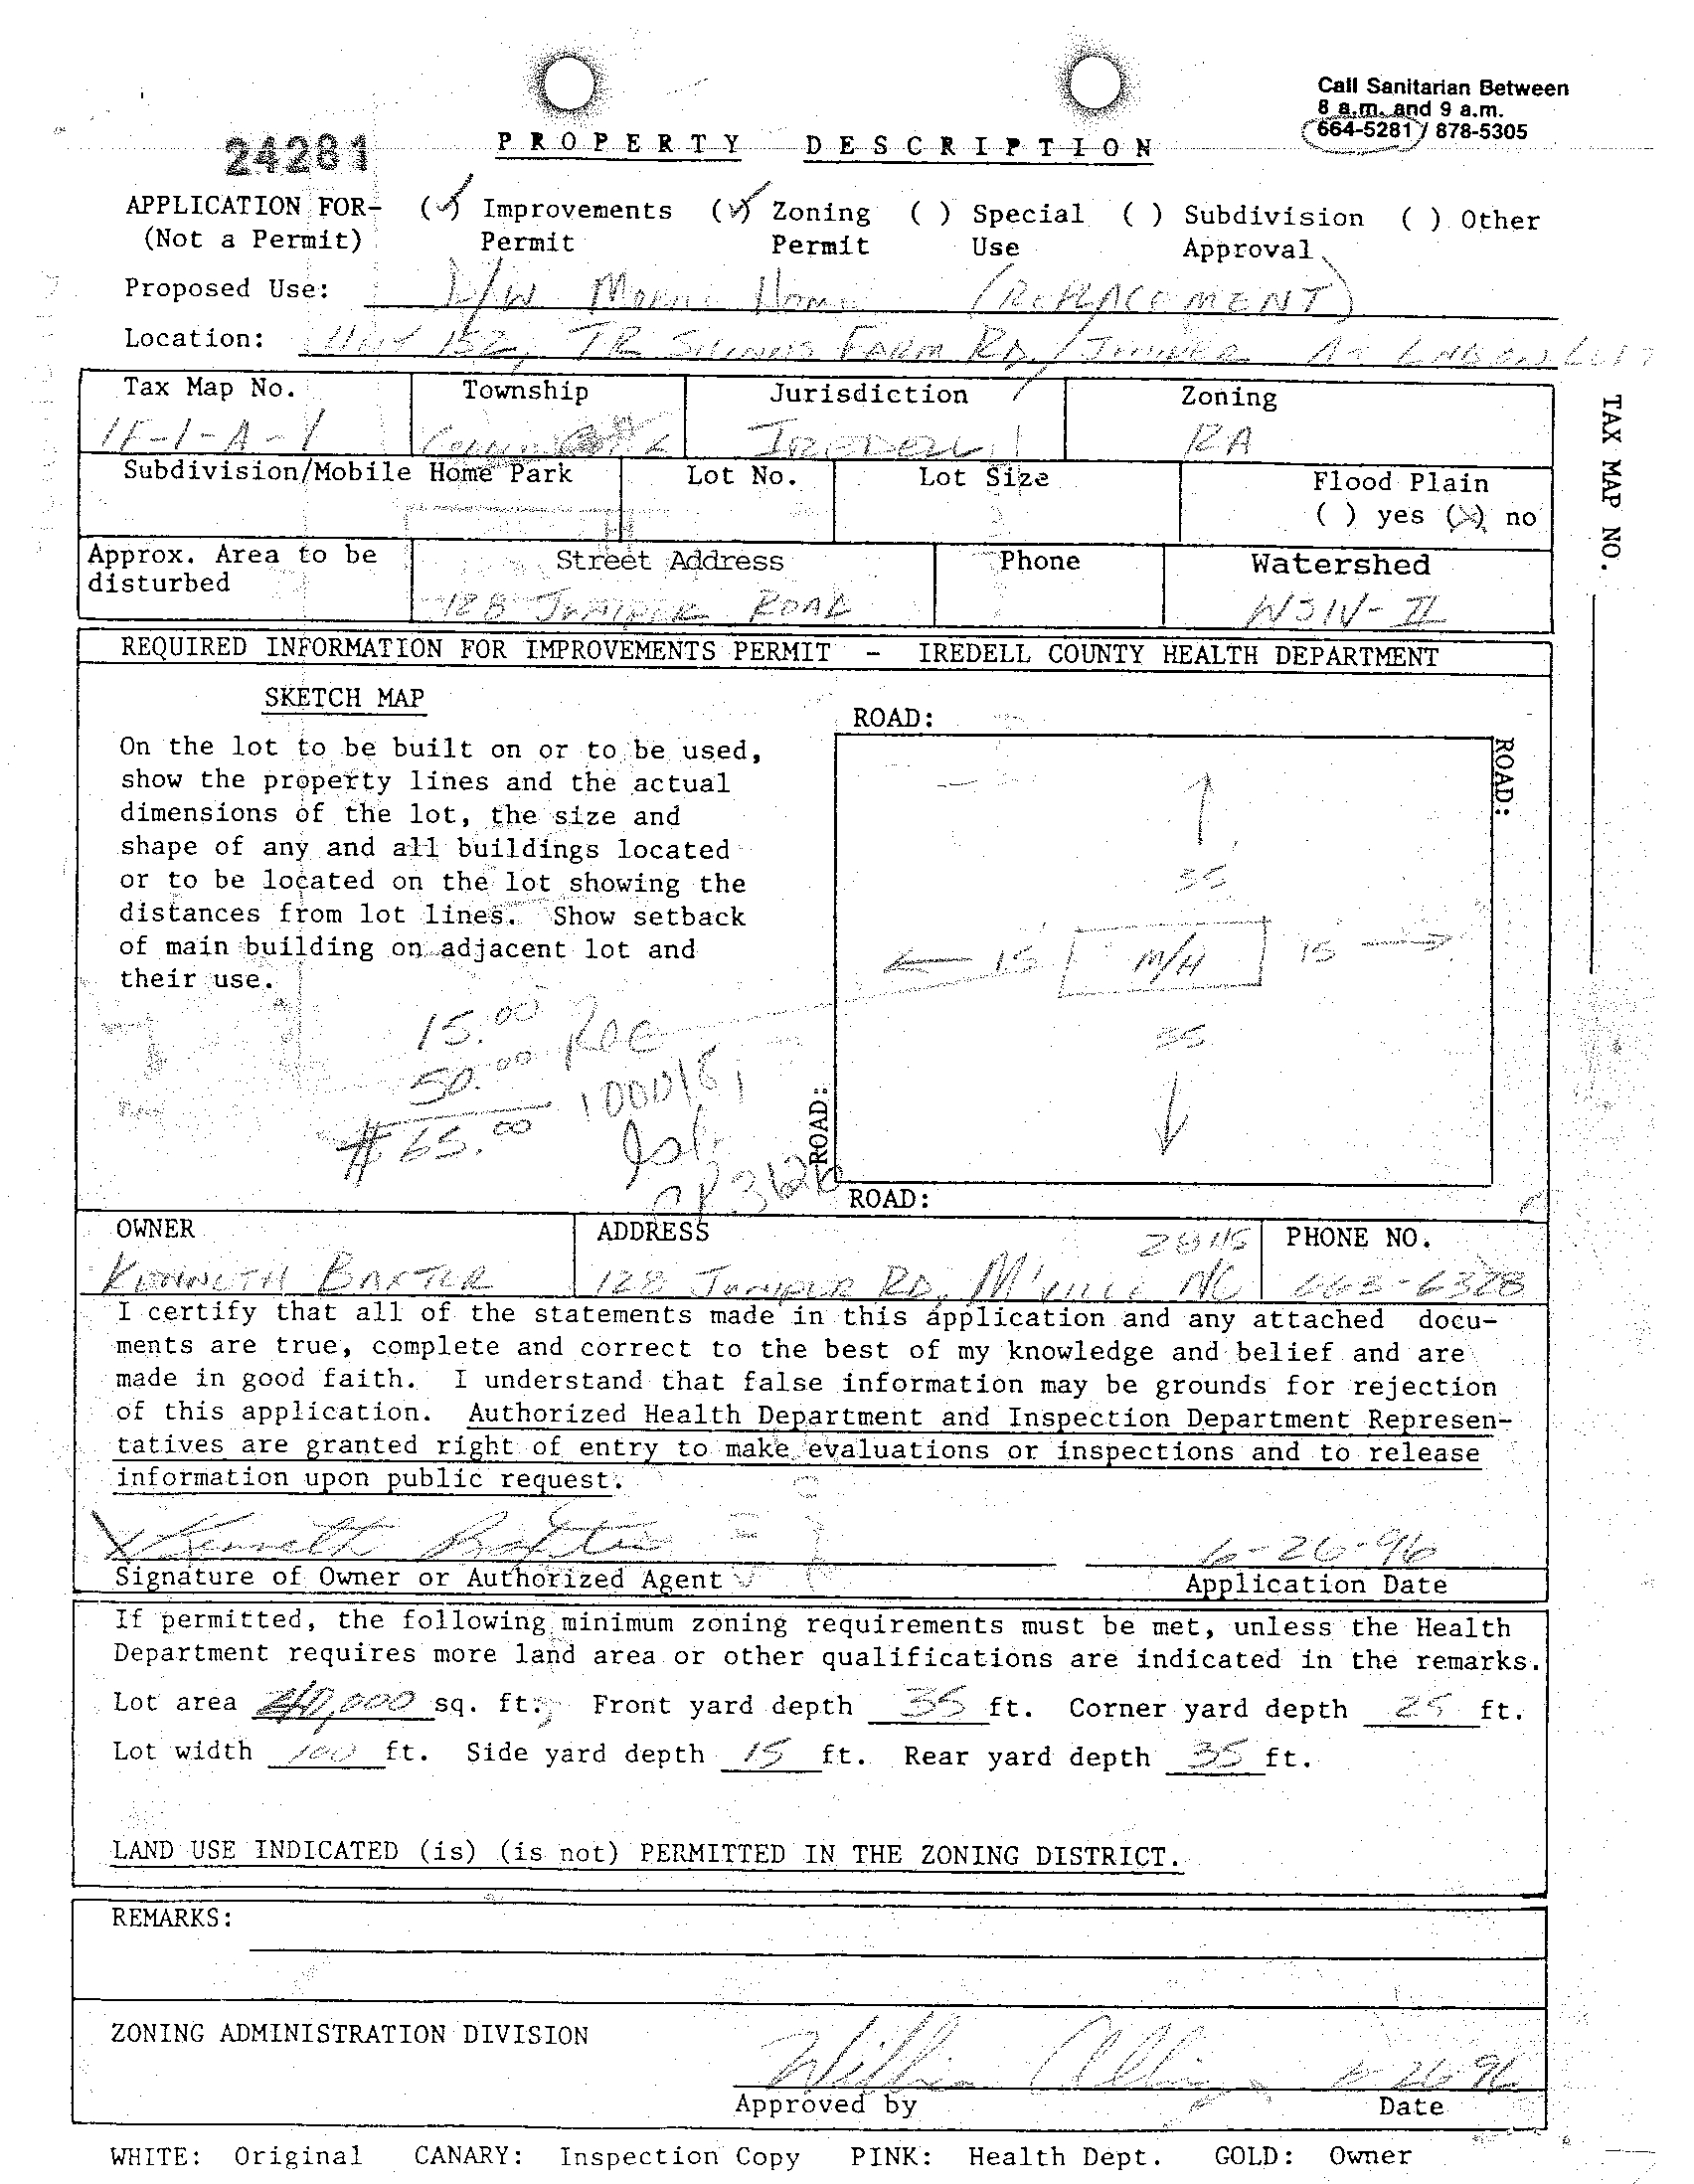 Call Sanitarian Between
8 a.m. and 9 a.m.
664-5281 / 878-5305
24281
PROPERTY DESCRIPTION
APPLICATION FOR- (✓) Improvements (✓) Zoning ( ) Special ( ) Subdivision ( ) Other
(Not a Permit) Permit Permit Use Approval
Proposed Use: D/W Mobile Home (REPLACEMENT)
Location: HWY 152, TR FARM RD, / JUNIPER ON LEFT
Tax Map No. Township Jurisdiction Zoning
1F-1-A-1 IREDELL RA
Subdivision/Mobile Home Park Lot No. Lot Size Flood Plain
( ) yes (X) no
Approx. Area to be Street Address Phone Watershed
disturbed
128 JUNIPER ROAD WSIV-II
TAX MAP NO.
REQUIRED INFORMATION FOR IMPROVEMENTS PERMIT - IREDELL COUNTY HEALTH DEPARTMENT
SKETCH MAP
ROAD:
On the lot to be built on or to be used,
show the property lines and the actual
dimensions of the lot, the size and
shape of any and all buildings located
or to be located on the lot showing the
distances from lot lines. Show setback
of main building on adjacent lot and
their use.
ROAD:
35
15 M/H 15
35
15.00 Rec
50.00 1000161
#65.00
ROAD:
ROAD:
OWNER ADDRESS PHONE NO.
KENNETH BAXTER 128 JUNIPER RD, M'VILLE NC 28115 663-6328
I certify that all of the statements made in this application and any attached docu-
ments are true, complete and correct to the best of my knowledge and belief and are
made in good faith. I understand that false information may be grounds for rejection
of this application. Authorized Health Department and Inspection Department Represen-
tatives are granted right of entry to make evaluations or inspections and to release
information upon public request.
X Kenneth Baxter 6-26-96
Signature of Owner or Authorized Agent Application Date
If permitted, the following minimum zoning requirements must be met, unless the Health
Department requires more land area or other qualifications are indicated in the remarks.
Lot area 40,000 sq. ft., Front yard depth 35 ft. Corner yard depth 25 ft.
Lot width 100 ft. Side yard depth 15 ft. Rear yard depth 35 ft.
LAND USE INDICATED (is) (is not) PERMITTED IN THE ZONING DISTRICT.
REMARKS:
ZONING ADMINISTRATION DIVISION
William 6-26-96
Approved by Date
WHITE: Original CANARY: Inspection Copy PINK: Health Dept. GOLD: Owner